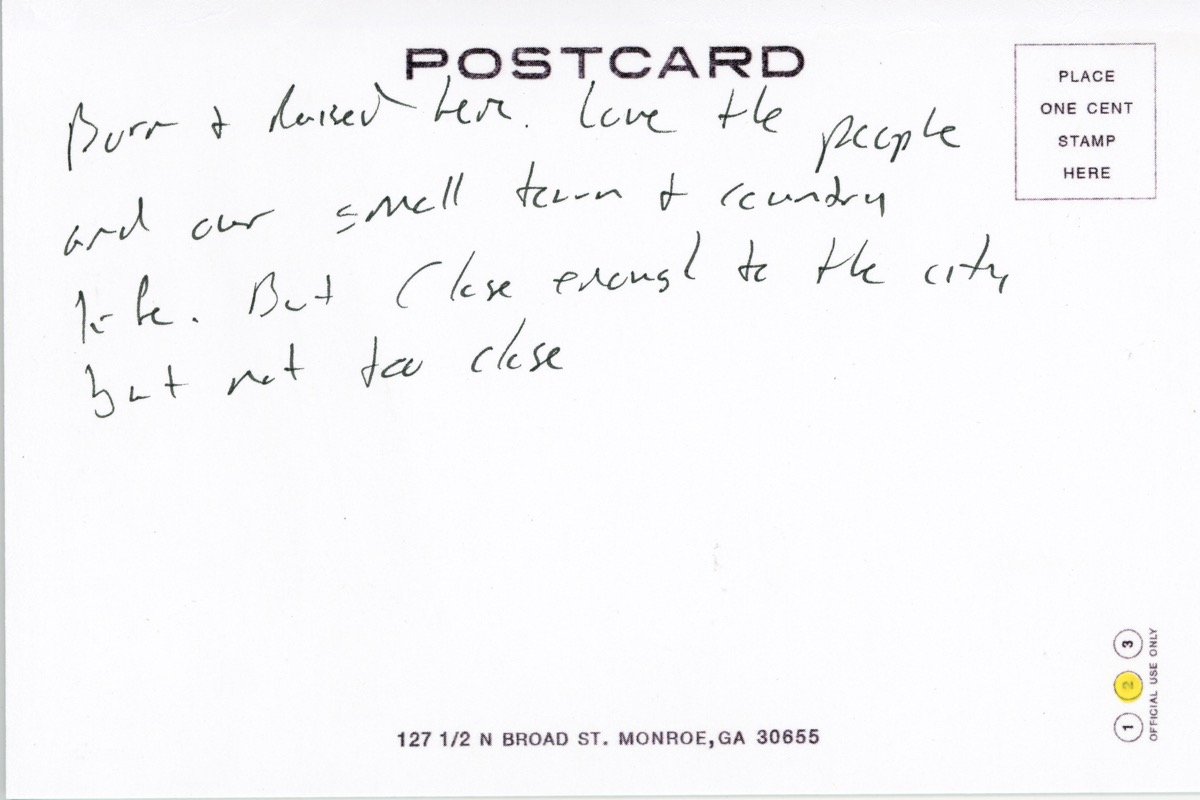 POSTCARD
PLACE
ONE CENT
STAMP
HERE
Born + Raised here. Love the people
and our small town + country
life. But Close enough to the city
but not too close
127 1/2 N BROAD ST. MONROE, GA 30655
1 2 3
OFFICIAL USE ONLY